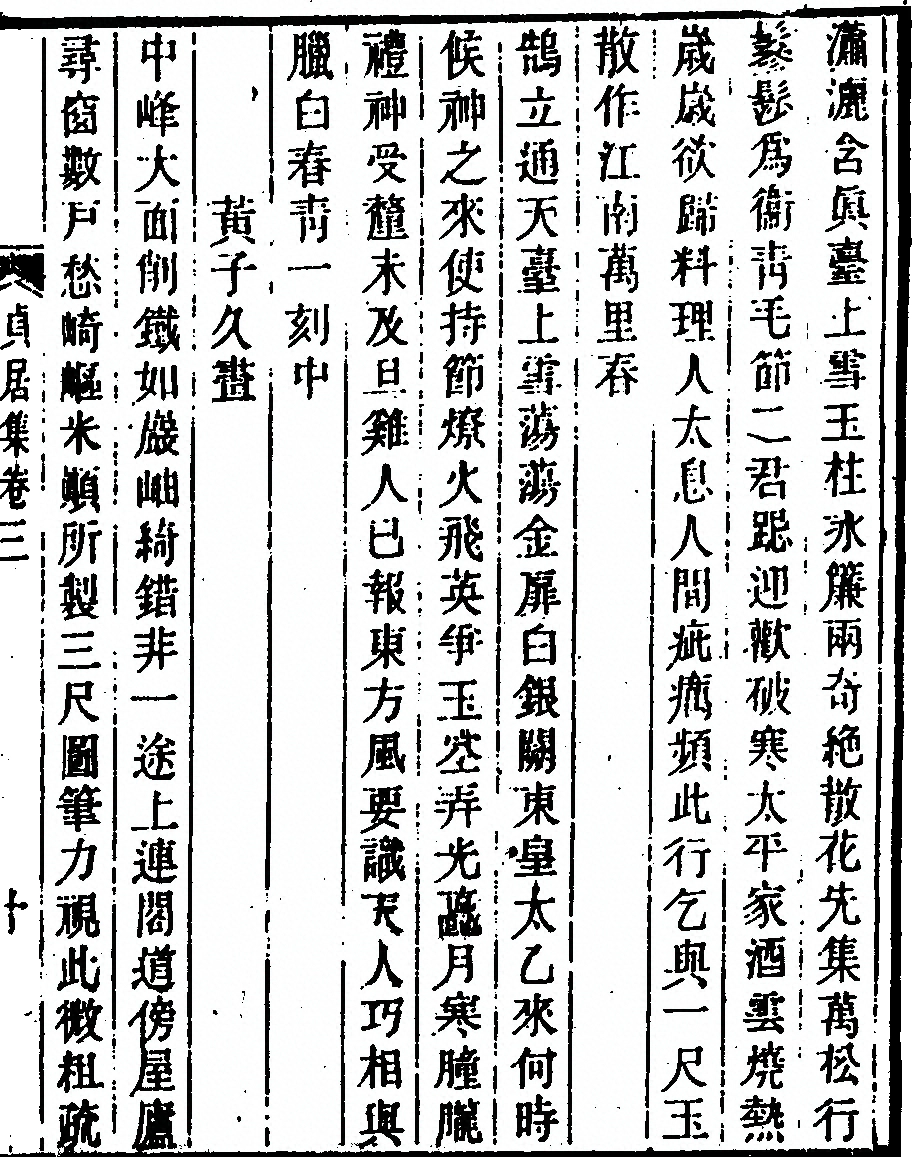 瀟灑含眞臺上雪玉柱氷簾兩奇絶散花先集萬松行
鬖髿爲衞靑毛節二君跽迎歡破寒太平家酒雲燒熱
歲歲欲歸料理人太息人間疵癘頻此行乞與一尺玉
散作江南萬里春
鵠立通天臺上雪蕩蕩金扉白銀闕東皇太乙來何時
候神之來使持節燎火飛英爭玉塋弄光蘸月寒朣朧
禮神受釐未及旦雞人已報東方風要識天人巧相與
臘白春靑一刻中
黃子久畫
中峰大面削鐵如巖岫綺錯非一途上連閣道傍屋廬
尋窗數戶愁崎嶇米顚所製三尺圖筆力視此微粗疏
貞居集卷三
十